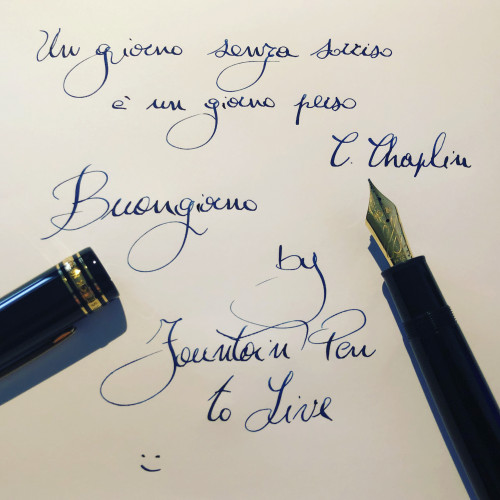 Un giorno senza sorriso
è un giorno perso
C. Chaplin
Buongiorno
by
Fountain Pen
to Live
:)